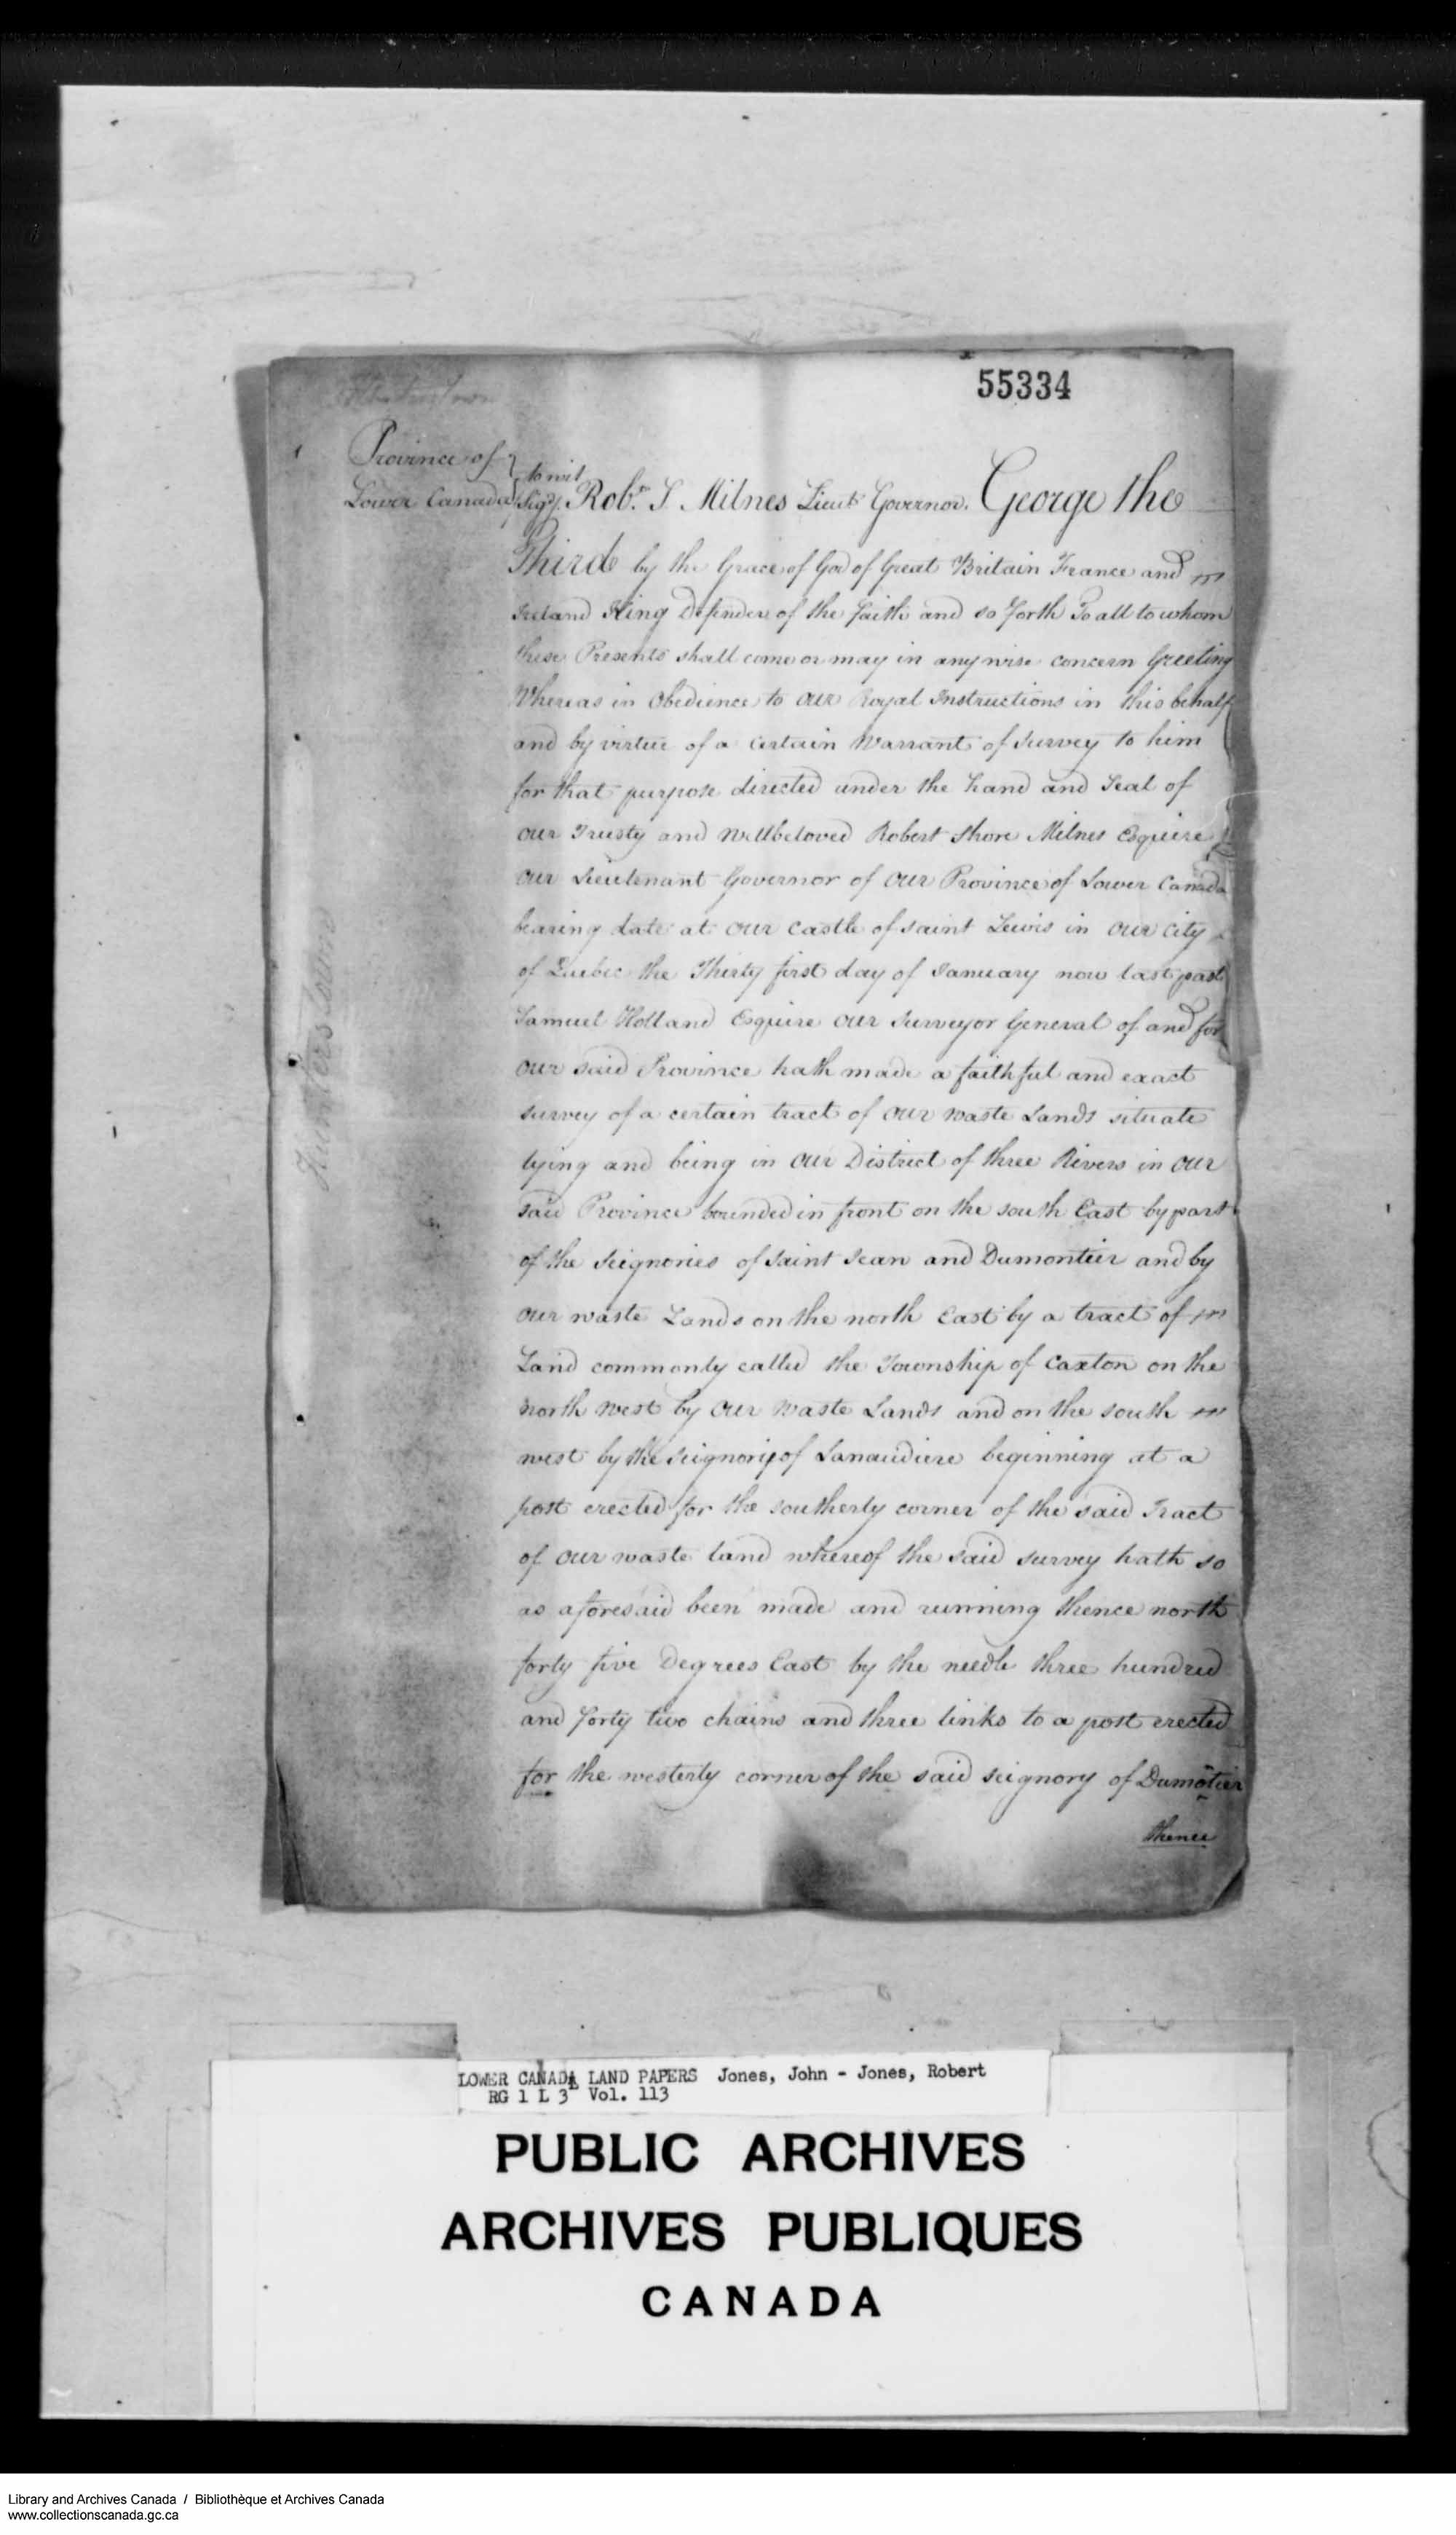 55334
Province of
Lower Canada
to wit
(Sigd). Robt. S. Milnes Lieut Governor. George the
Third by the Grace of God of Great Britain France and
Ireland King Defender of the faith and so forth To all to whom
these Presents shall come or may in anywise concern Greeting
Whereas in Obedience to our Royal Instructions in this behalf
and by virtue of a certain Warrant of Survey to him
for that purpose directed under the hand and Seal of
our Trusty and Wellbeloved Robert Shore Milnes Esquire
our Lieutenant Governor of our Province of Lower Canada
bearing date at our Castle of Saint Lewis in our City
of Quebec the Thirty first day of January now last past
Samuel Holland Esquire our Surveyor General of and for
our said Province hath made a faithful and exact
survey of a certain tract of our waste Lands situate
lying and being in our District of three Rivers in our
said Province bounded in front on the south East by part
of the Seignories of Saint Jean and Dumontier and by
our waste Lands on the north East by a tract of
Land commonly called the Township of Caxton on the
north West by our Waste Lands and on the south
west by the Seignory of Lanaudiere beginning at a
post erected for the southerly corner of the said Tract
of our waste land whereof the said survey hath so
as aforesaid been made and running thence north
forty five Degrees East by the needle three hundred
and forty two chains and three links to a post erected
for the westerly corner of the said seignory of Dumōtier
thence
Hunterstown
LOWER CANADA LAND PAPERS Jones, John - Jones, Robert
RG 1 L 3L Vol. 113
PUBLIC ARCHIVES
ARCHIVES PUBLIQUES
CANADA
Library and Archives Canada / Bibliothèque et Archives Canada
www.collectionscanada.gc.ca